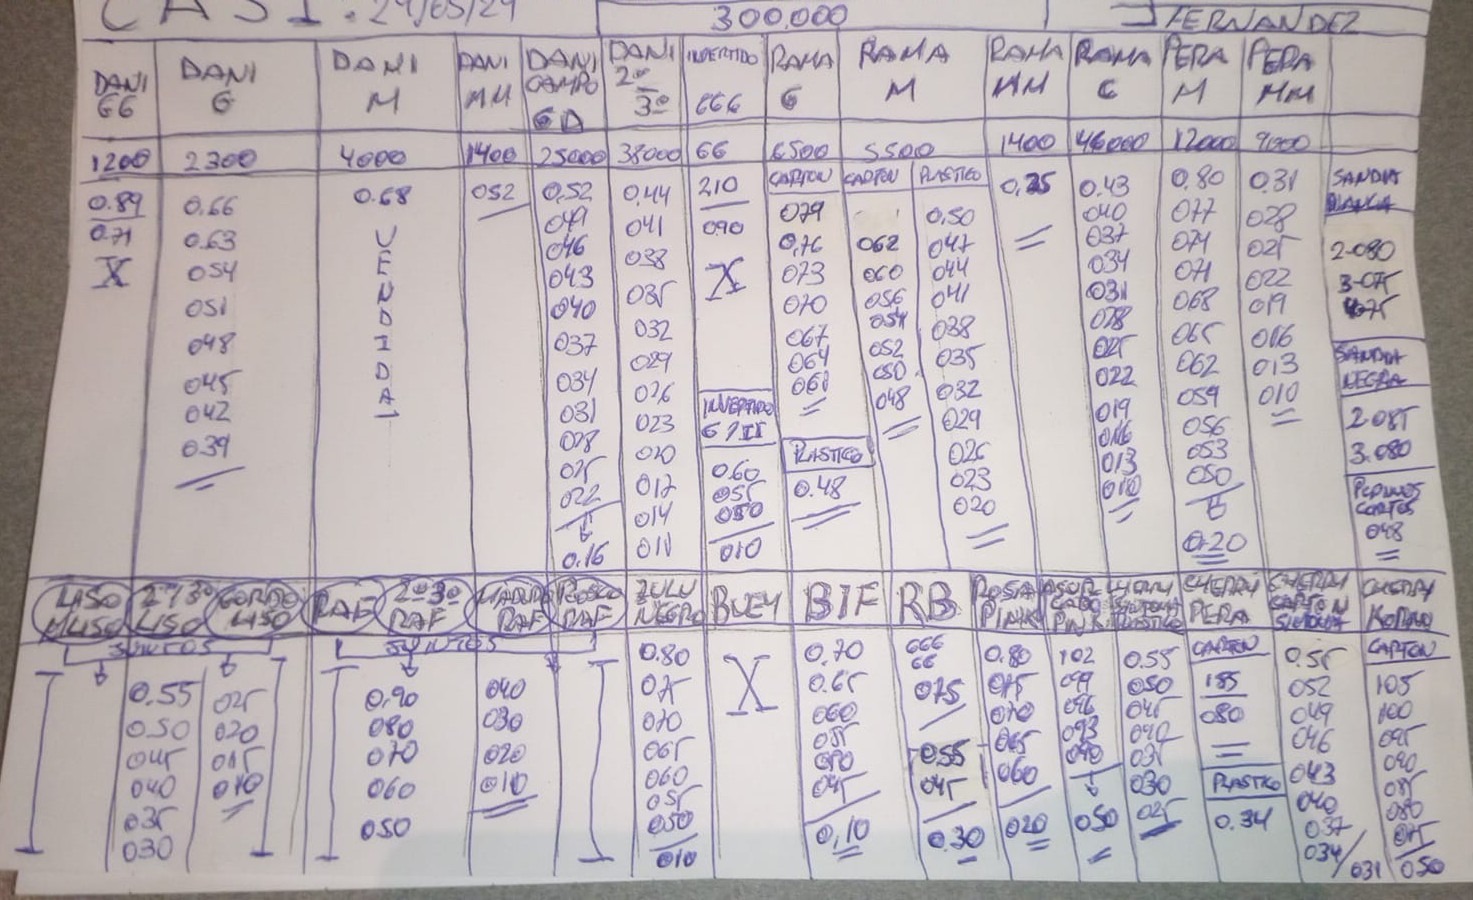 CASI . 29/05/24
300.000
J FERNANDEZ
DANI GG
DANI G
DANI M
DANI MM
DANI CAMPO GD
DANI 2º 3º
INVERTIDO GGG
RAMA G
RAMA M
RAMA MM
RAMA C
PERA M
PERA MM
1200
2300
4000
1400
25000
38000
66
6500
5500
1400
46000
12000
9000
0.89
0.71
X
0.66
0.63
054
051
048
045
042
039
0.68
VENDIDA
052
0.52
049
046
043
040
037
034
031
028
025
022
0.16
0.44
041
038
035
032
029
026
023
020
017
014
011
210
090
X
INVERTIDO
G / II
0.60
055
050
010
CARTON
079
0,76
073
070
067
064
061
PLASTICO
0.48
CARTON
062
060
056
054
052
050
048
PLASTICO
0.50
047
044
041
038
035
032
029
026
023
020
0,25
0.43
040
037
034
031
028
025
022
019
016
013
010
0.80
077
074
071
068
065
062
059
056
053
050
0.20
0.31
028
025
022
019
016
013
010
SANDIA
BLANCA
2-080
3-075
4-075
SANDIA
NEGRA
2-085
3.080
PEPINOS
CORTOS
048
LISO MLISO
2º/3º LISO
GORDO LISO
RAF
2º 3º RAF
MADURO RAF
ROSCO RAF
ZULU NEGRO
BUEY
BIF
RB
ROSA PINK
ASUR CABO PINK
CHERRY SINTONIA PLASTICO
CHERRY PERA
CHERRY CARTON SINTONIA
CHERRY KOPAN
JUNTOS
0.55
0.50
045
040
035
030
025
020
015
010
JUNTOS
0.90
080
070
060
050
040
030
020
010
0.80
075
070
065
060
055
050
010
X
0.70
0.65
060
055
050
045
0,10
666
66
075
0.55
045
0.30
0.80
075
070
065
060
020
102
099
096
093
090
050
0.55
050
045
040
035
030
025
CARTON
185
080
PLASTICO
0.34
0.55
052
049
046
043
040
037
034
031
CARTON
105
100
095
090
085
080
075
050